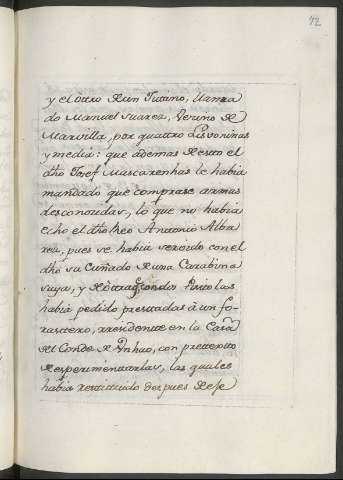 72
y el otro de un Tutino, llama
do Manuel Suarez, Vecino de
Marvilla, por quattro Lisvoninas
y media: que ademas de esto el
dho Josef Mascarenhas le habia
mandado que comprase armas
desconozidas, lo que no habia
echo el dho Reo Antonio Alba
rez, pues se habia servido con el
dho su Cuñado de una Carabina
suya, y de otra que con dos Pistolas
habia pedido prestadas à un fo-
rastero, rresidente en la Casa
del Conde de Unhao, con pretexto
de experimentarlas, las quales
habia restituido despues de se